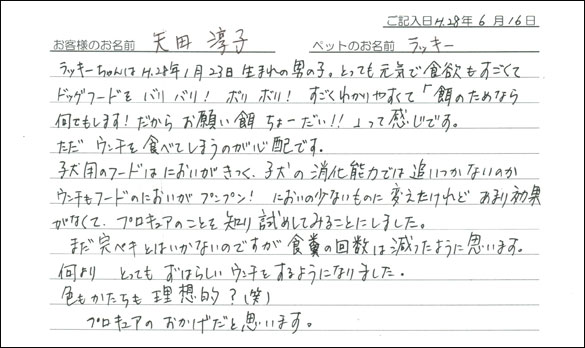 ご記入日H.28年6月16日
お客様のお名前 天田 淳子 ペットのお名前 ラッキー
ラッキーちゃんはH.28年1月23日生まれの男の子。とっても元気で食欲もすごくて
ドッグフードをバリバリ! ボリボリ! すごくわかりやすくて「餌のためなら
何でもします!だからお願い餌ちょーだい!!」って感じです。
ただウンチを食べてしまうのが心配です。
子犬用のフードはにおいがきつく、子犬の消化能力では追いつかないのか
ウンチもフードのにおいがプンプン! においの少ないものに変えたけれどあまり効果
がなくて、プロキュアのことを知り試めしてみることにしました。
まだ完ペキとはいかないのですが食糞の回数は減ったように思います。
何よりとってもすばらしいウンチをするようになりました。
色もかたちも理想的?(笑)
プロキュアのおかげだと思います。